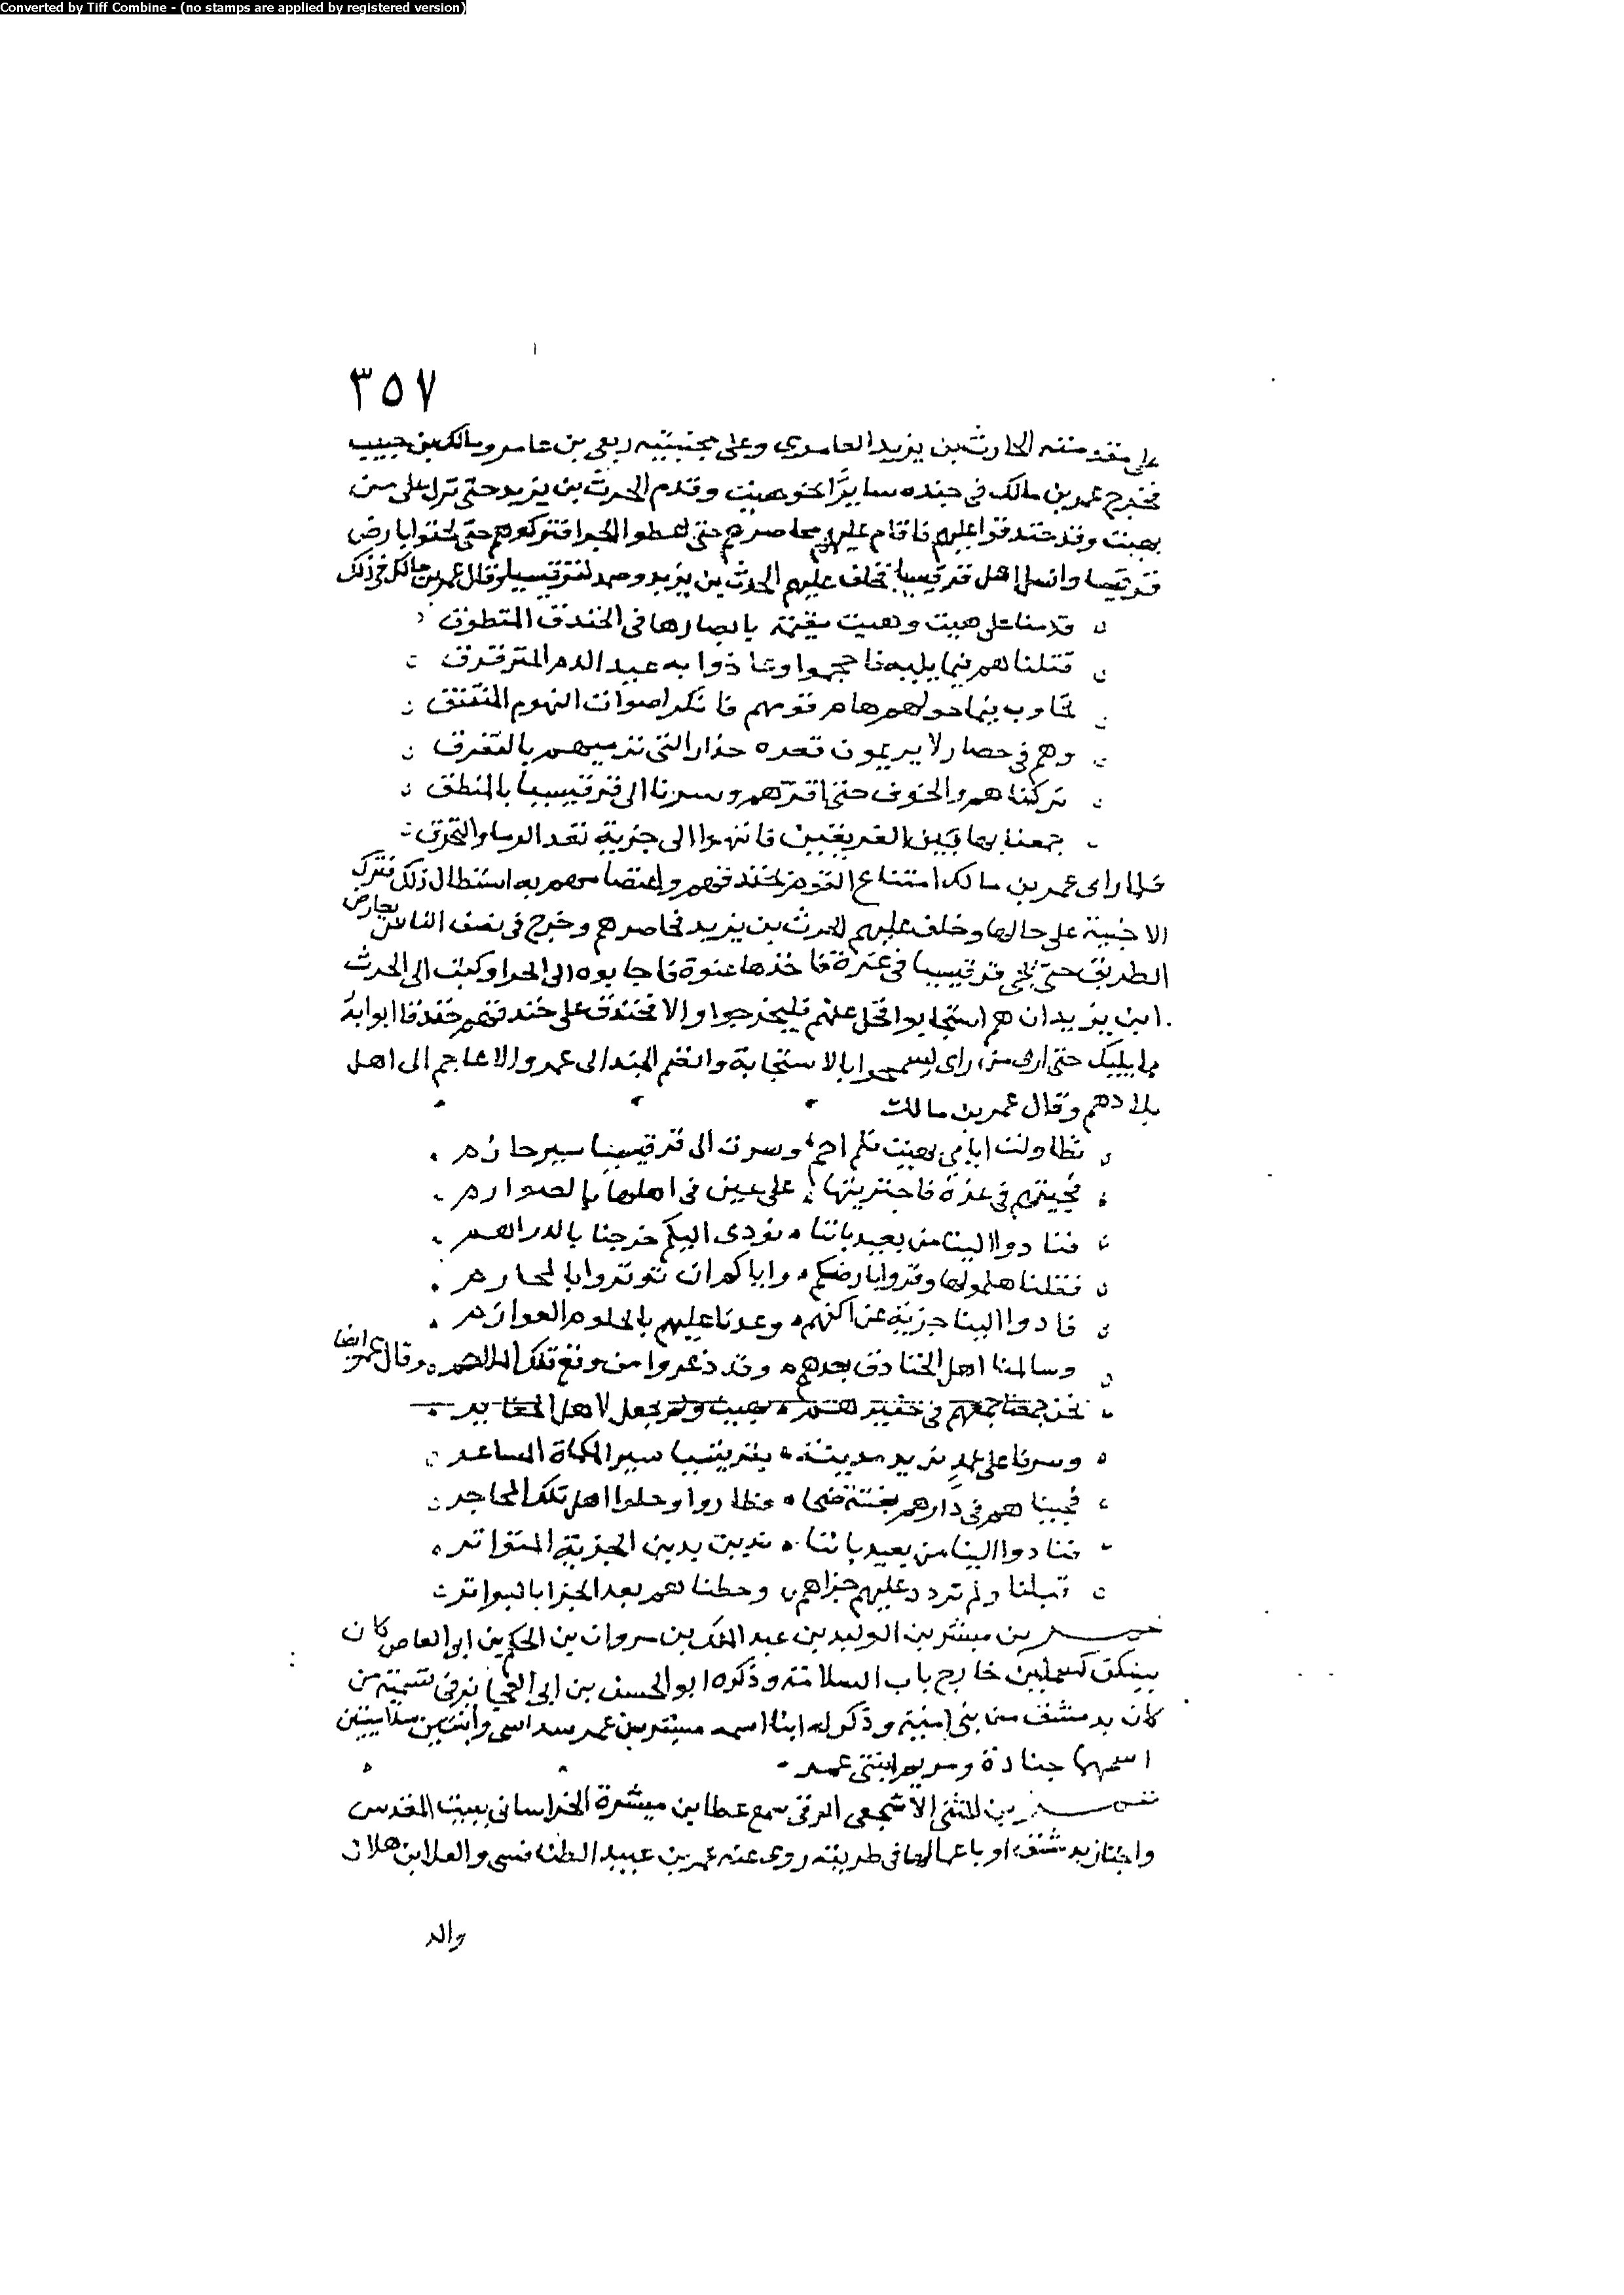 Converted by Tiff Combine - (no stamps are applied by registered version)
٣٥٧
على مقدمته الحارث بن يزيد العامري وعلى مجنبتيه ربعي بن عامر ومالك بن حبيب
فخرج عمر بن مالك في جنده سايرا نحو هيت وقدم الحرث بن يزيد حتى نزل على من
بهيت وقد خندقوا عليهم فاقام عليهم محاصرهم حتى اعطوا الجزا فتركوهم حتى لحقوا بارض
قرقيسيا اهل قرقيسيا فخلف عليهم الحرث بن يزيد وصمد لقرقيسيا وقال عمر بن مالك في ذلك
قدمنا على هيت وهيت مقيمة بابصارها في الخندق المتطوق
قتلناهم فيما يليه فاحجموا وعاذوا به عبيد الدم المترقرق
تجاوب فيما حولهم هام قومهم فانكر اصوات النهوم
وهم في حصار لا يريمون قعره حذار التي ترميهم بالتفرق
تركناهم والخوف حتى اقرهم وسرنا الى قرقيسيا بالمنطق
جمعنا بها بين الفريقين فانتهوا الى جزية بعد الدما والتحرق
فلما راى عمر بن مالك امتناع القوم بخندقهم واعتصامهم به استطال ذلك فترك
الاخبية على حالها وخلف عليهم الحرث بن يزيد محاصرهم وخرج في نصف الناس يعارض
الطريق حتى يجى قرقيسيا في غرة فاخذها عنوة فاجابوه الى الجزا وكتب الى الحرث
ابن يزيد ان هم استجابوا فخل عنهم فليخرجوا والا فخندق على خندقهم خندقا ابوابه
مما يليك حتى ارى من راى فسمحوا بالاستجابة وانضم الجند الى عمر والاعاجم الى اهل
بلادهم وقال عمر بن مالك
تطاولت ايامي بهيت فلم احم وسرت الى قرقيسيا سير حازم
فجيتهم في غرة فاحتويتها على غبن في اهلها بالصوارم
فنادوا الينا من بعيد باننا نودي اليكم خرجنا بالدراهم
فقلنا هلموها وقروا بارضكم واياكم ان توتروا بالمحارم
فادوا الينا جزية عن اكفهم وعدنا عليهم بالحلوم العوازم
وسالمنا اهل الخنادق بعدهم وقد ذعروا من وقع تلك وقال عمر ايضا
نحن جمعنا جمعهم في حفيرهم بهيت ولم نحفل لاهل الحفاير
وسرنا على عمد نريد مدينة بقرقيسيا سير الكماة المساعر
فجيناهم في دارهم بغتة ضحى فطاروا وخلوا اهل تلك المحاجر
فنادوا الينا من بعيد باننا ندين بدين الجزية المتواتر
قبلنا ولم نردد عليهم جزاهم وحطناهم بعد الجزا بالبواتر
عمر بن مبشر بن الوليد بن عبد الملك بن مروان بن الحكم بن ابي العاص كان
يسكن خارج باب السلامة وذكره ابو الحسن بن ابي العجايز في تسمية من
كان بدمشق من بني امية وذكر له ابنا اسمه مبشر بن عمر سداسي وابنتين
اسمهما جنادة ومريم ابنتي عمر
عمر بن المثنى الاشجعي الرقي سمع عطا بن ميسرة الخراساني ببيت المقدس
واجتاز بدمشق او باعمالها في طريقه روى عنه عمر بن عبيد الطنافسي والعلا بن هلال
والد